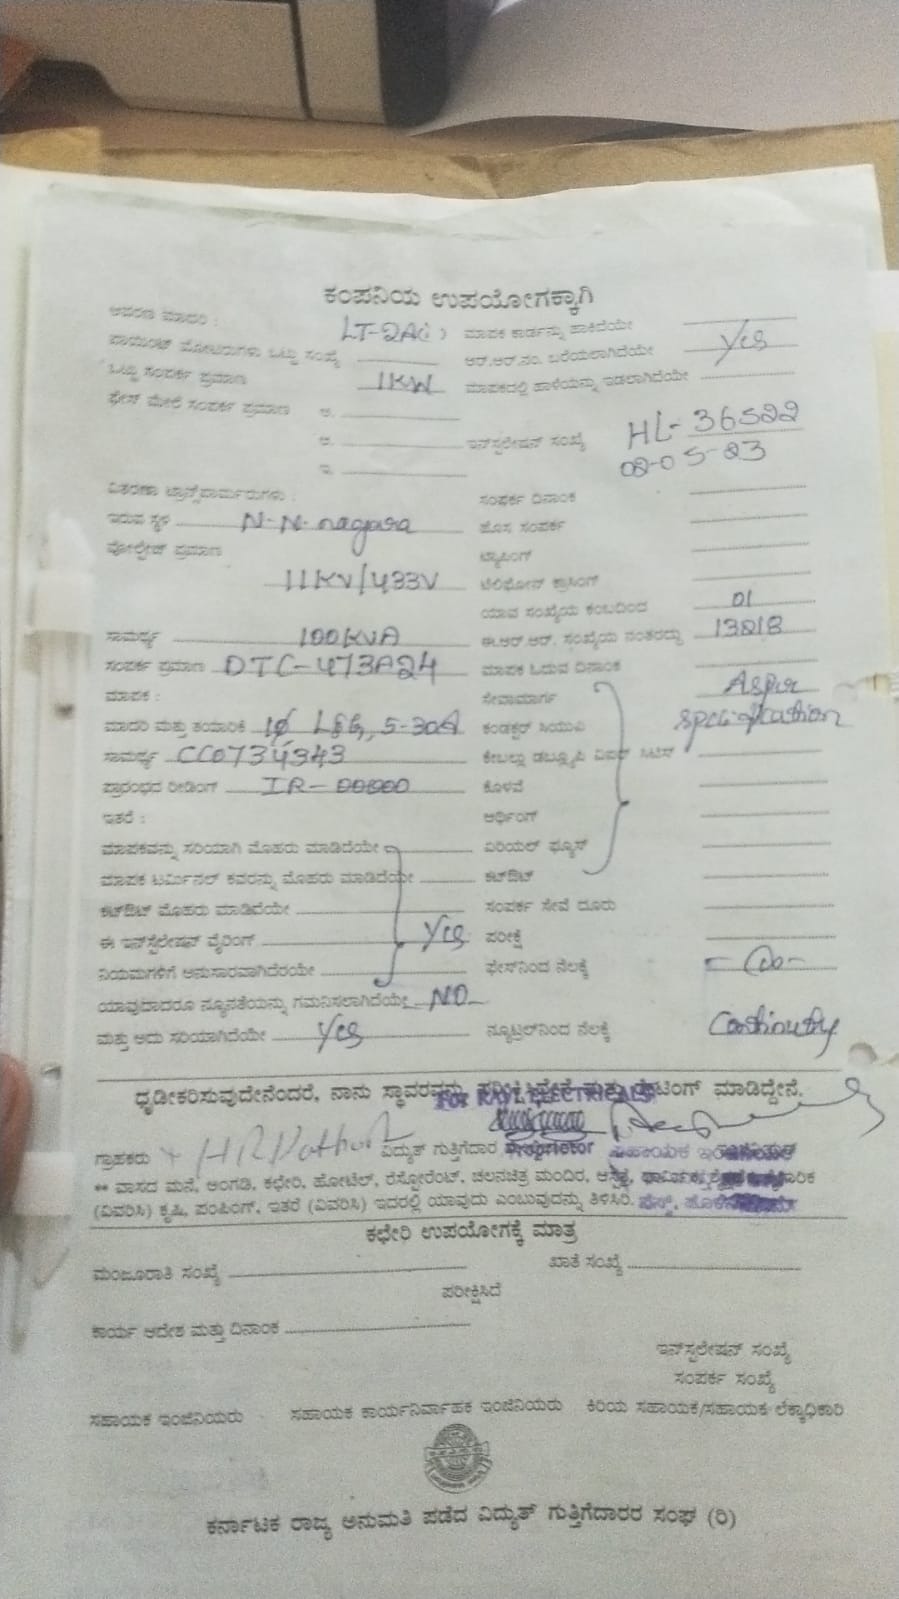 ಕಂಪನಿಯ ಉಪಯೋಗಕ್ಕಾಗಿ
ಆವರಣ ಮಾದರಿ : LT-2A(i) ಮಾಪಕ ಕಾರ್ಡನ್ನು ಹಾಕಿದೆಯೇ
ಪಾಯಿಂಟ್ ಮೋಟರುಗಳು ಒಟ್ಟು ಸಂಖ್ಯೆ ಆರ್.ಆರ್.ನಂ. ಬರೆಯಲಾಗಿದೆಯೇ Yes
ಒಟ್ಟು ಸಂಪರ್ಕ ಪ್ರಮಾಣ 1KW ಮಾಪಕದಲ್ಲಿ ಹಾಳೆಯನ್ನು ಇಡಲಾಗಿದೆಯೇ
ಫೇಸ್ ಮೇಲೆ ಸಂಪರ್ಕ ಪ್ರಮಾಣ ಅ.
ಆ. ಇನ್‌ಸ್ಟಲೇಷನ್ ಸಂಖ್ಯೆ HL-36522
ಇ. 02-05-23
ವಿತರಣಾ ಟ್ರಾನ್ಸ್‌ಫಾರ್ಮರುಗಳು : ಸಂಪರ್ಕ ದಿನಾಂಕ
ಇರುವ ಸ್ಥಳ N-N-nagara ಹೊಸ ಸಂಪರ್ಕ
ವೋಲ್ಟೇಜ್ ಪ್ರಮಾಣ ಟ್ಯಾಪಿಂಗ್
11KV/433V ಟೆಲಿಫೋನ್ ಕ್ರಾಸಿಂಗ್
ಯಾವ ಸಂಖ್ಯೆಯ ಕಂಬದಿಂದ 01
ಸಾಮರ್ಥ್ಯ 100KVA ಈ.ಆರ್.ಆರ್. ಸಂಖ್ಯೆಯ ನಂತರದ್ದು 13218
ಸಂಪರ್ಕ ಪ್ರಮಾಣ DTC-473A24 ಮಾಪಕ ಓದುವ ದಿನಾಂಕ
ಮಾಪಕ : ಸೇವಾಮಾರ್ಗ As per
ಮಾದರಿ ಮತ್ತು ತಯಾರಿಕೆ 1ϕ L&G, 5-30A ಕಂಡಕ್ಟರ್ ಸಿಯುವಿ specification
ಸಾಮರ್ಥ್ಯ CC0734343 ಕೇಬಲ್ಲು ಡಬ್ಲ್ಯೂಪಿ
ಪ್ರಾರಂಭದ ರೀಡಿಂಗ್ IR-00000 ಕೊಳವೆ
ಇತರೆ : ಅರ್ಥಿಂಗ್
ಮಾಪಕವನ್ನು ಸರಿಯಾಗಿ ಮೊಹರು ಮಾಡಿದೆಯೇ ಏರಿಯಲ್ ಫ್ಯೂಸ್
ಮಾಪಕ ಟರ್ಮಿನಲ್ ಕವರನ್ನು ಮೊಹರು ಮಾಡಿದೆಯೇ ಕಟ್‌ಔಟ್
ಕಟ್‌ಔಟ್ ಮೊಹರು ಮಾಡಿದೆಯೇ ಸಂಪರ್ಕ ಸೇವೆ ದೂರು
ಈ ಇನ್‌ಸ್ಟಲೇಷನ್ ವೈರಿಂಗ್ Yes ಪರೀಕ್ಷೆ
ನಿಯಮಗಳಿಗೆ ಅನುಸಾರವಾಗಿದೆರಯೇ ಫೇಸ್‌ನಿಂದ ನೆಲಕ್ಕೆ
ಯಾವುದಾದರೂ ನ್ಯೂನತೆಯನ್ನು ಗಮನಿಸಲಾಗಿದೆಯೇ NO
ಮತ್ತು ಅದು ಸರಿಯಾಗಿದೆಯೇ Yes ನ್ಯೂಟ್ರಲ್‌ನಿಂದ ನೆಲಕ್ಕೆ Continuity
ಧೃಡೀಕರಿಸುವುದೇನೆಂದರೆ, ನಾನು ಸ್ಥಾವರವನ್ನು ಮತ್ತು ಮಾಡಿದ್ದೇನೆ.
For ELECTRICALS
ಗ್ರಾಹಕರು ವಿದ್ಯುತ್ ಗುತ್ತಿಗೆದಾರ Proprietor ಸಹಾಯಕ
** ವಾಸದ ಮನೆ, ಅಂಗಡಿ, ಕಛೇರಿ, ಹೋಟೆಲ್, ರೆಸ್ಟೋರೆಂಟ್, ಚಲನಚಿತ್ರ ಮಂದಿರ,
(ವಿವರಿಸಿ) ಕೃಷಿ, ಪಂಪಿಂಗ್, ಇತರೆ (ವಿವರಿಸಿ) ಇದರಲ್ಲಿ ಯಾವುದು ಎಂಬುವುದನ್ನು ತಿಳಿಸಿರಿ.
ಕಛೇರಿ ಉಪಯೋಗಕ್ಕೆ ಮಾತ್ರ
ಮಂಜೂರಾತಿ ಸಂಖ್ಯೆ ಖಾತೆ ಸಂಖ್ಯೆ
ಪರೀಕ್ಷಿಸಿದೆ
ಕಾರ್ಯ ಆದೇಶ ಮತ್ತು ದಿನಾಂಕ
ಇನ್‌ಸ್ಟಲೇಷನ್ ಸಂಖ್ಯೆ
ಸಂಪರ್ಕ ಸಂಖ್ಯೆ
ಸಹಾಯಕ ಇಂಜಿನಿಯರು ಸಹಾಯಕ ಕಾರ್ಯನಿರ್ವಾಹಕ ಇಂಜಿನಿಯರು ಕಿರಿಯ ಸಹಾಯಕ/ಸಹಾಯಕ ಲೆಕ್ಕಾಧಿಕಾರಿ
ಕರ್ನಾಟಕ ರಾಜ್ಯ ಅನುಮತಿ ಪಡೆದ ವಿದ್ಯುತ್ ಗುತ್ತಿಗೆದಾರರ ಸಂಘ (ರಿ)